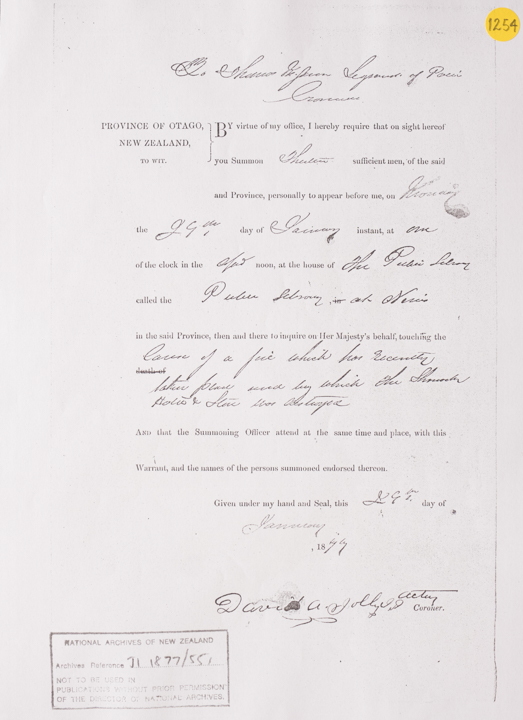 1254
To Thomas Sergeant of Police
Cromwell
PROVINCE OF OTAGO,
NEW ZEALAND,
TO WIT.
BY virtue of my office, I hereby require that on sight hereof
you Summon Thirteen sufficient men, of the said
and Province, personally to appear before me, on
the 29th day of January instant, at one
of the clock in the noon, at the house of The Public Library
called the Public Library, at Nevis
in the said Province, then and there to inquire on Her Majesty's behalf, touching the
death of
Cause of a fire which has recently
taken place and by which the
Hotel & Store was destroyed
AND that the Summoning Officer attend at the same time and place, with this
Warrant, and the names of the persons summoned endorsed thereon.
Given under my hand and Seal, this day of
January
, 1877
David A Jolly Acting
Coroner.
NATIONAL ARCHIVES OF NEW ZEALAND
Archives Reference J1 1877/551
NOT TO BE USED IN
PUBLICATIONS WITHOUT PRIOR PERMISSION
OF THE DIRECTOR OF NATIONAL ARCHIVES.